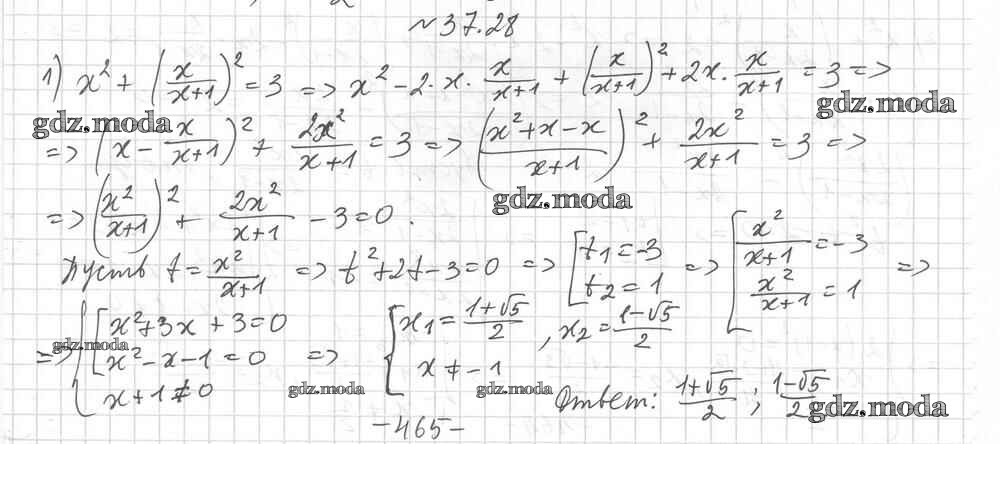 №37.28
1) x² + (x/(x+1))² = 3 => x² - 2·x·x/(x+1) + (x/(x+1))² + 2x·x/(x+1) = 3 =>
gdz.moda gdz.moda
=> (x - x/(x+1))² + 2x²/(x+1) = 3 => ((x²+x-x)/(x+1))² + 2x²/(x+1) = 3 =>
gdz.moda
=> (x²/(x+1))² + 2x²/(x+1) - 3 = 0.
Пусть t = x²/(x+1) => t² + 2t - 3 = 0 => [t₁ = -3; t₂ = 1 => [x²/(x+1) = -3; x²/(x+1) = 1 =>
=> {[x² + 3x + 3 = 0; x² - x - 1 = 0; x + 1 ≠ 0 => {x₁ = (1+√5)/2, x₂ = (1-√5)/2; x ≠ -1
gdz.moda gdz.moda gdz.moda gdz.moda
Ответ: (1+√5)/2; (1-√5)/2
-465-